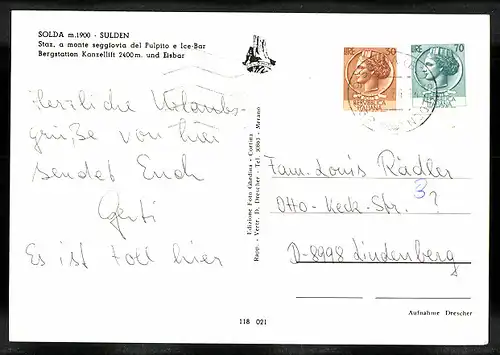 SOLDA m.1900 - SULDEN
Staz. a monte seggiovia del Pulpito e Ice-Bar
Bergstation Kanzellift 2400 m. und Eisbar
LIRE 50
LIRE 70
Herzliche Urlaubs-
grüße von hier
sendet Euch
Gerti
Es ist toll hier
Edizione Foto Ghedina - Cortina
Rapp. - Vertr. D. Drescher - Tel. 3363 - Merano
Fam. Louis Rädler
3?
Otto-Keck-Str.
D-8998 Lindenberg
Aufnahme Drescher
118 021